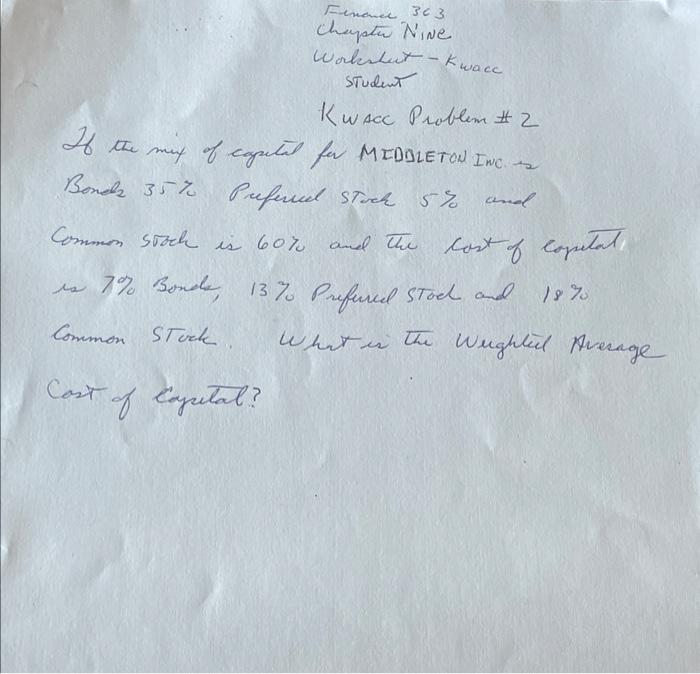 Finance 363
Chapter Nine
Worksheet - Kwacc
Student
Kwacc Problem # 2
If the mix of capital for MIDDLETON INC. is
Bonds 35% Preferred Stock 5% and
Common Stock is 60% and the Cost of Capital
is 7% Bonds, 13% Preferred Stock and 18%
Common Stock. What is the Weighted Average
Cost of Capital?